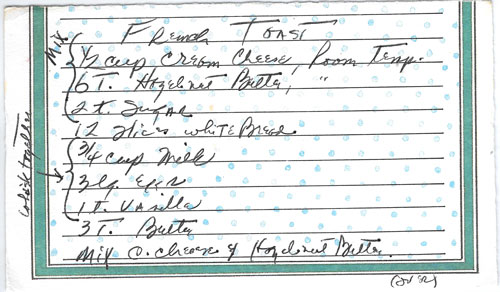 French Toast
Mix
1/2 cup Cream Cheese, Room Temp.
6 T. Hazelnut Butter, "
2 t. Sugar
12 slices white Bread
whisk together
3/4 cup Milk
3 lg. eggs
1 t. Vanilla
3 T. Butter
Mix c. cheese & Hazelnut Butter.
(over)